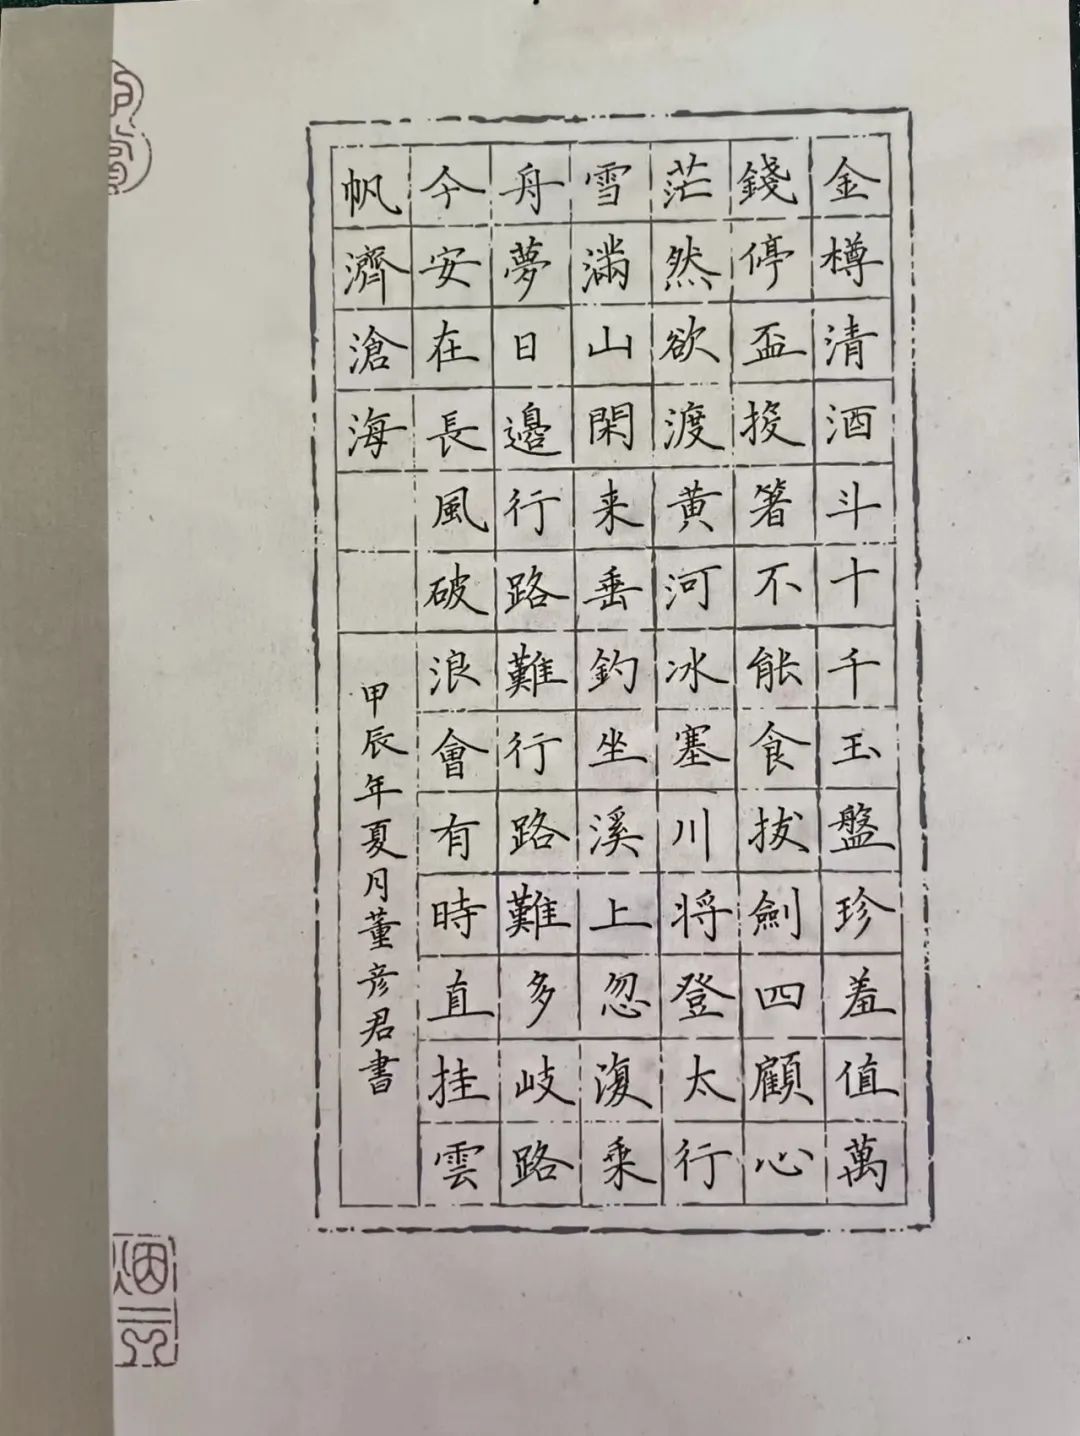 金樽清酒斗十千玉盤珍羞值萬
錢停盃投箸不能食拔劍四顧心
茫然欲渡黄河冰塞川將登太行
雪滿山閑来垂釣坐溪上忽復乘
舟夢日邊行路難行路難多岐路
今安在長風破浪會有時直挂雲
帆濟滄海
甲辰年夏月董彦君書